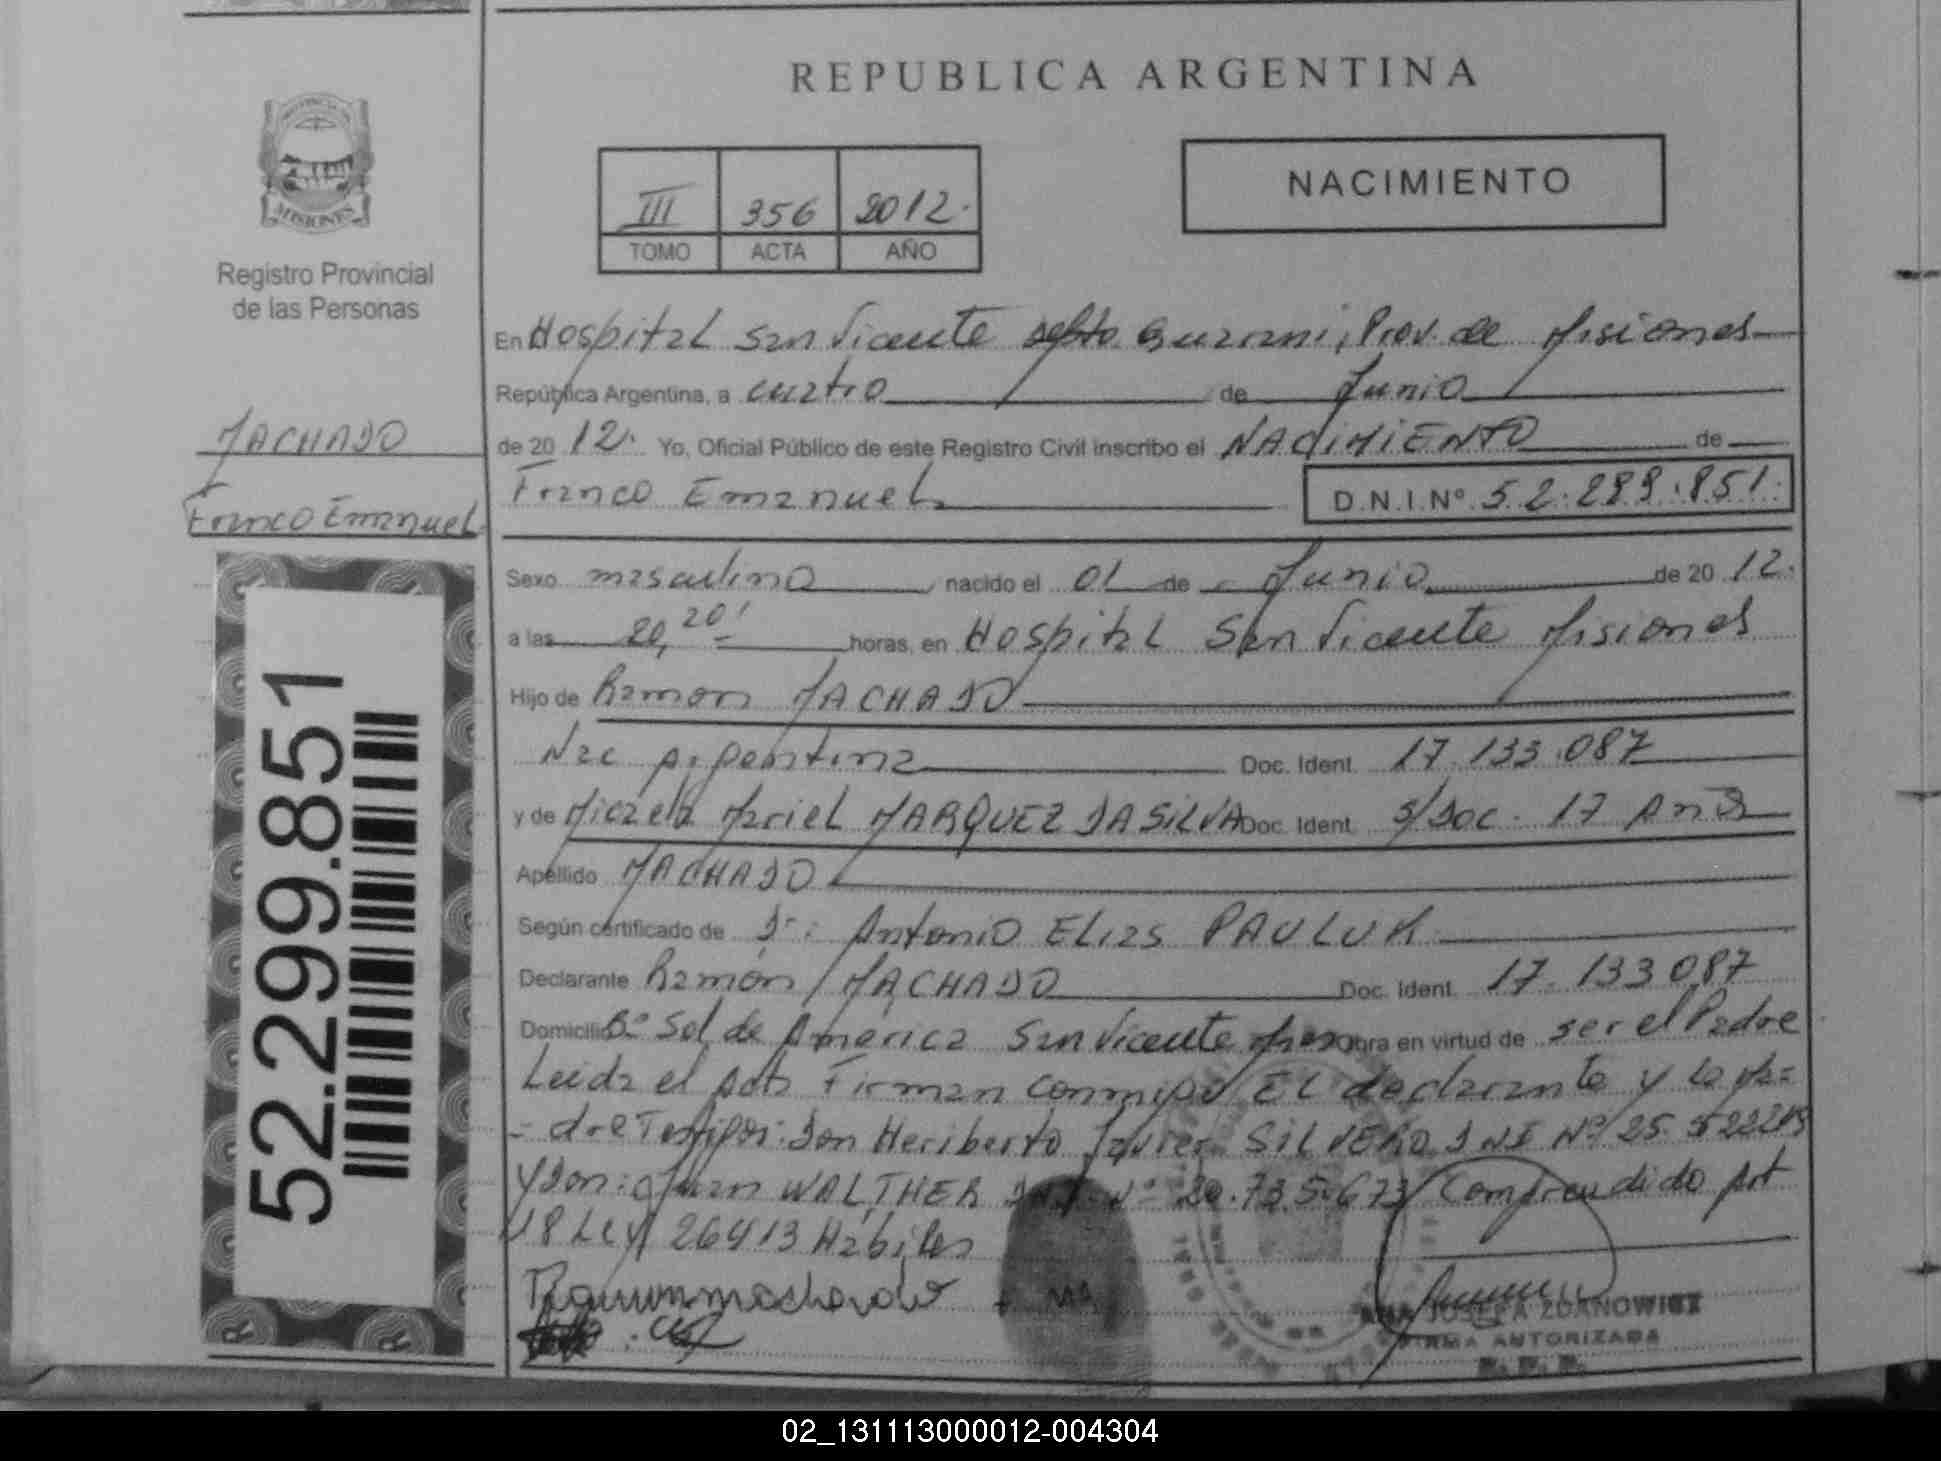 REPUBLICA ARGENTINA
MISIONES
Registro Provincial
de las Personas
III 356 2012.
TOMO ACTA AÑO
NACIMIENTO
MACHADO
Franco Emanuel
52.299.851
En Hospital San Vicente Depto Guarani, Prov. de Misiones
República Argentina, a cuatro de Junio
de 2012. Yo, Oficial Público de este Registro Civil inscribo el NACIMIENTO de
Franco Emanuel D.N.I. Nº 52.299.851.
Sexo masculino nacido el 01 de Junio de 2012.
a las 20,20' horas, en Hospital San Vicente Misiones
Hijo de Ramon MACHADO
Nac Argentina Doc. Ident. 17.133.087
y de Micaela Mariel MARQUEZ DA SILVA Doc. Ident. s/Doc. 17 Años
Apellido MACHADO
Según certificado de Dr: Antonio Elias PAULUK
Declarante Ramón MACHADO Doc. Ident. 17.133087
Domicilio Bº Sol de America San Vicente Mnes Obra en virtud de ser el Padre
Leida el Acta Firman conmigo El declarante y la Ma=
=dre Testigos: Don Heriberto Javier SILVERO DNI Nº 25.522219
y Don: Juan WALTHER D.N.I. Nº 20.735.673 Comprendido Art
18 Ley 26413 Habiles
Ramon machado
JOSEFA ZDANOWICZ
FIRMA AUTORIZADA
02_131113000012-004304